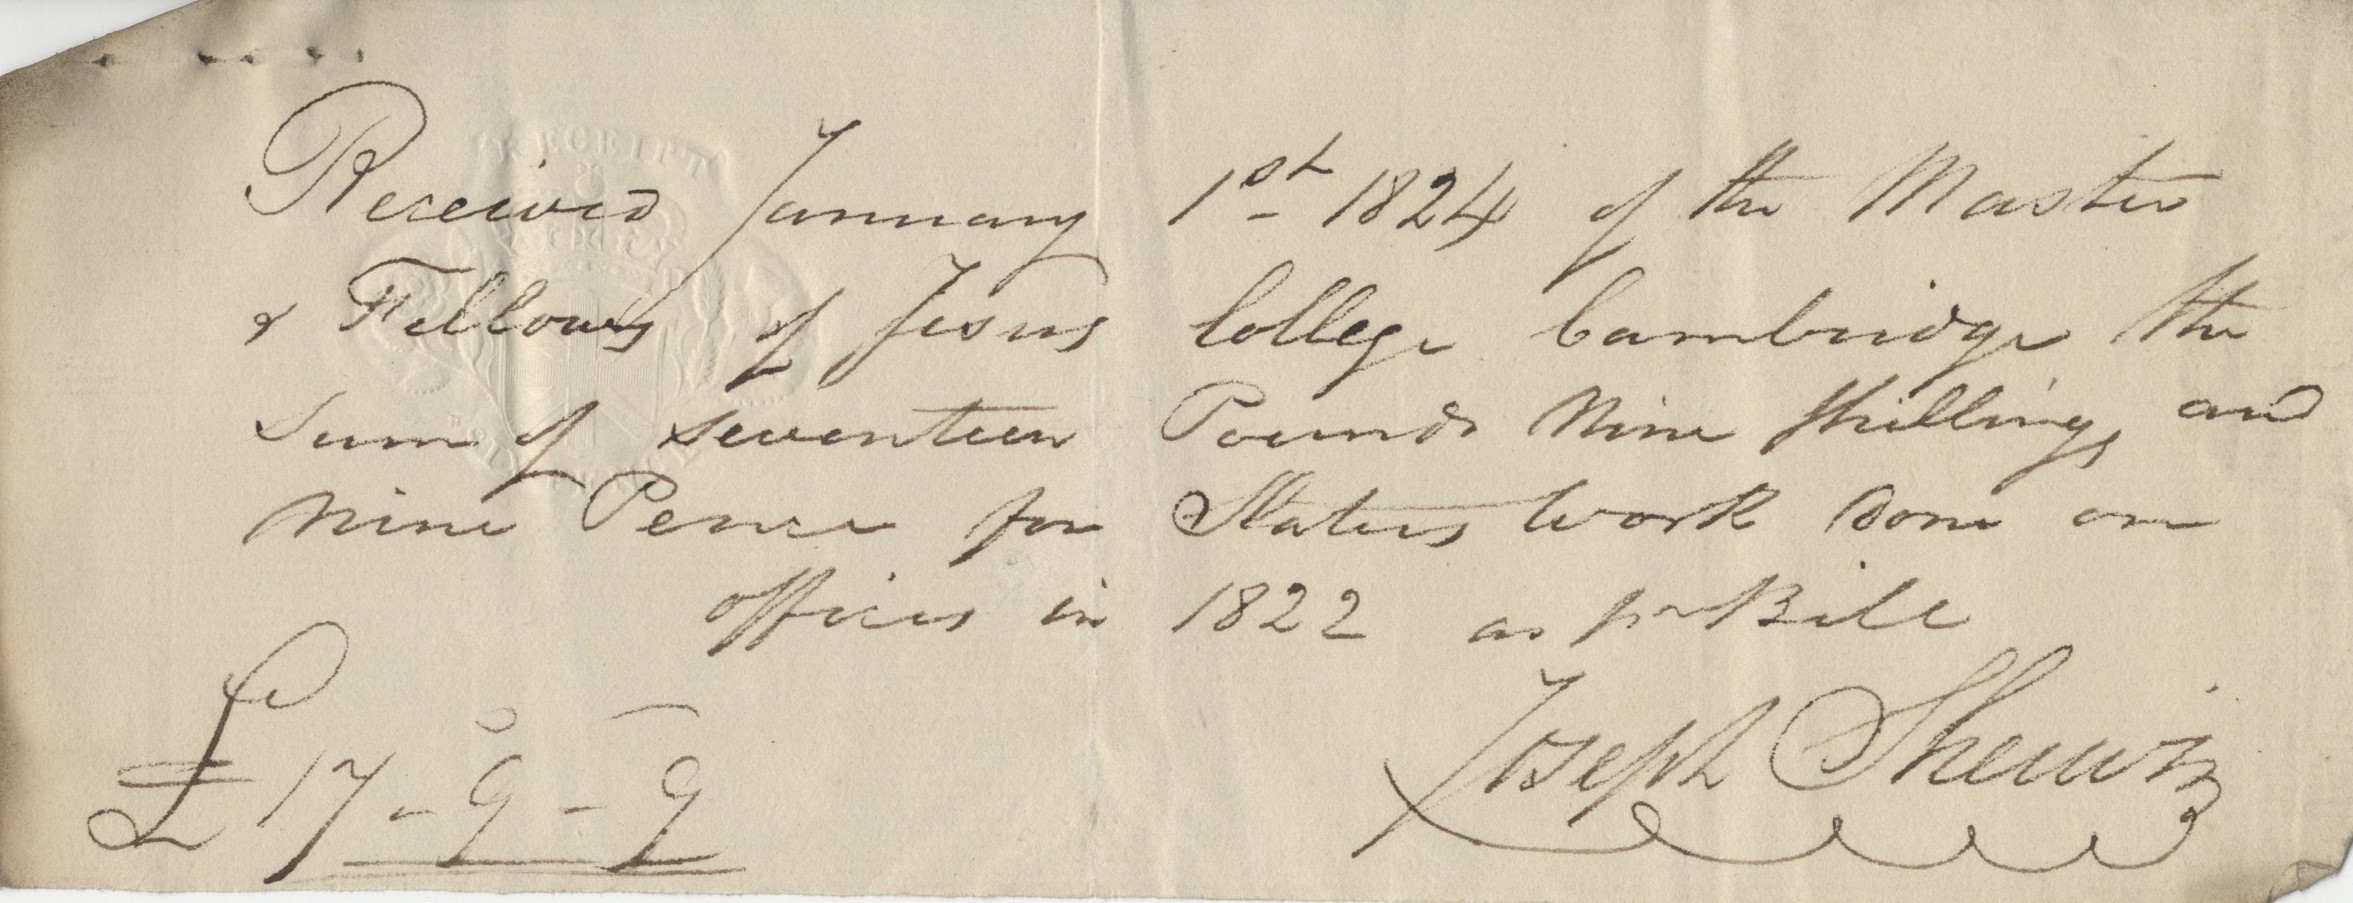 RECEIPT
Received January 1st 1824 of the Master
& Fellows of Jesus College Cambridge the
Sum of seventeen Pounds Nine Shillings and
Nine Pence for Slaters Work Done on
offices in 1822 as pr Bill
£17-9-9
Joseph Sherwin